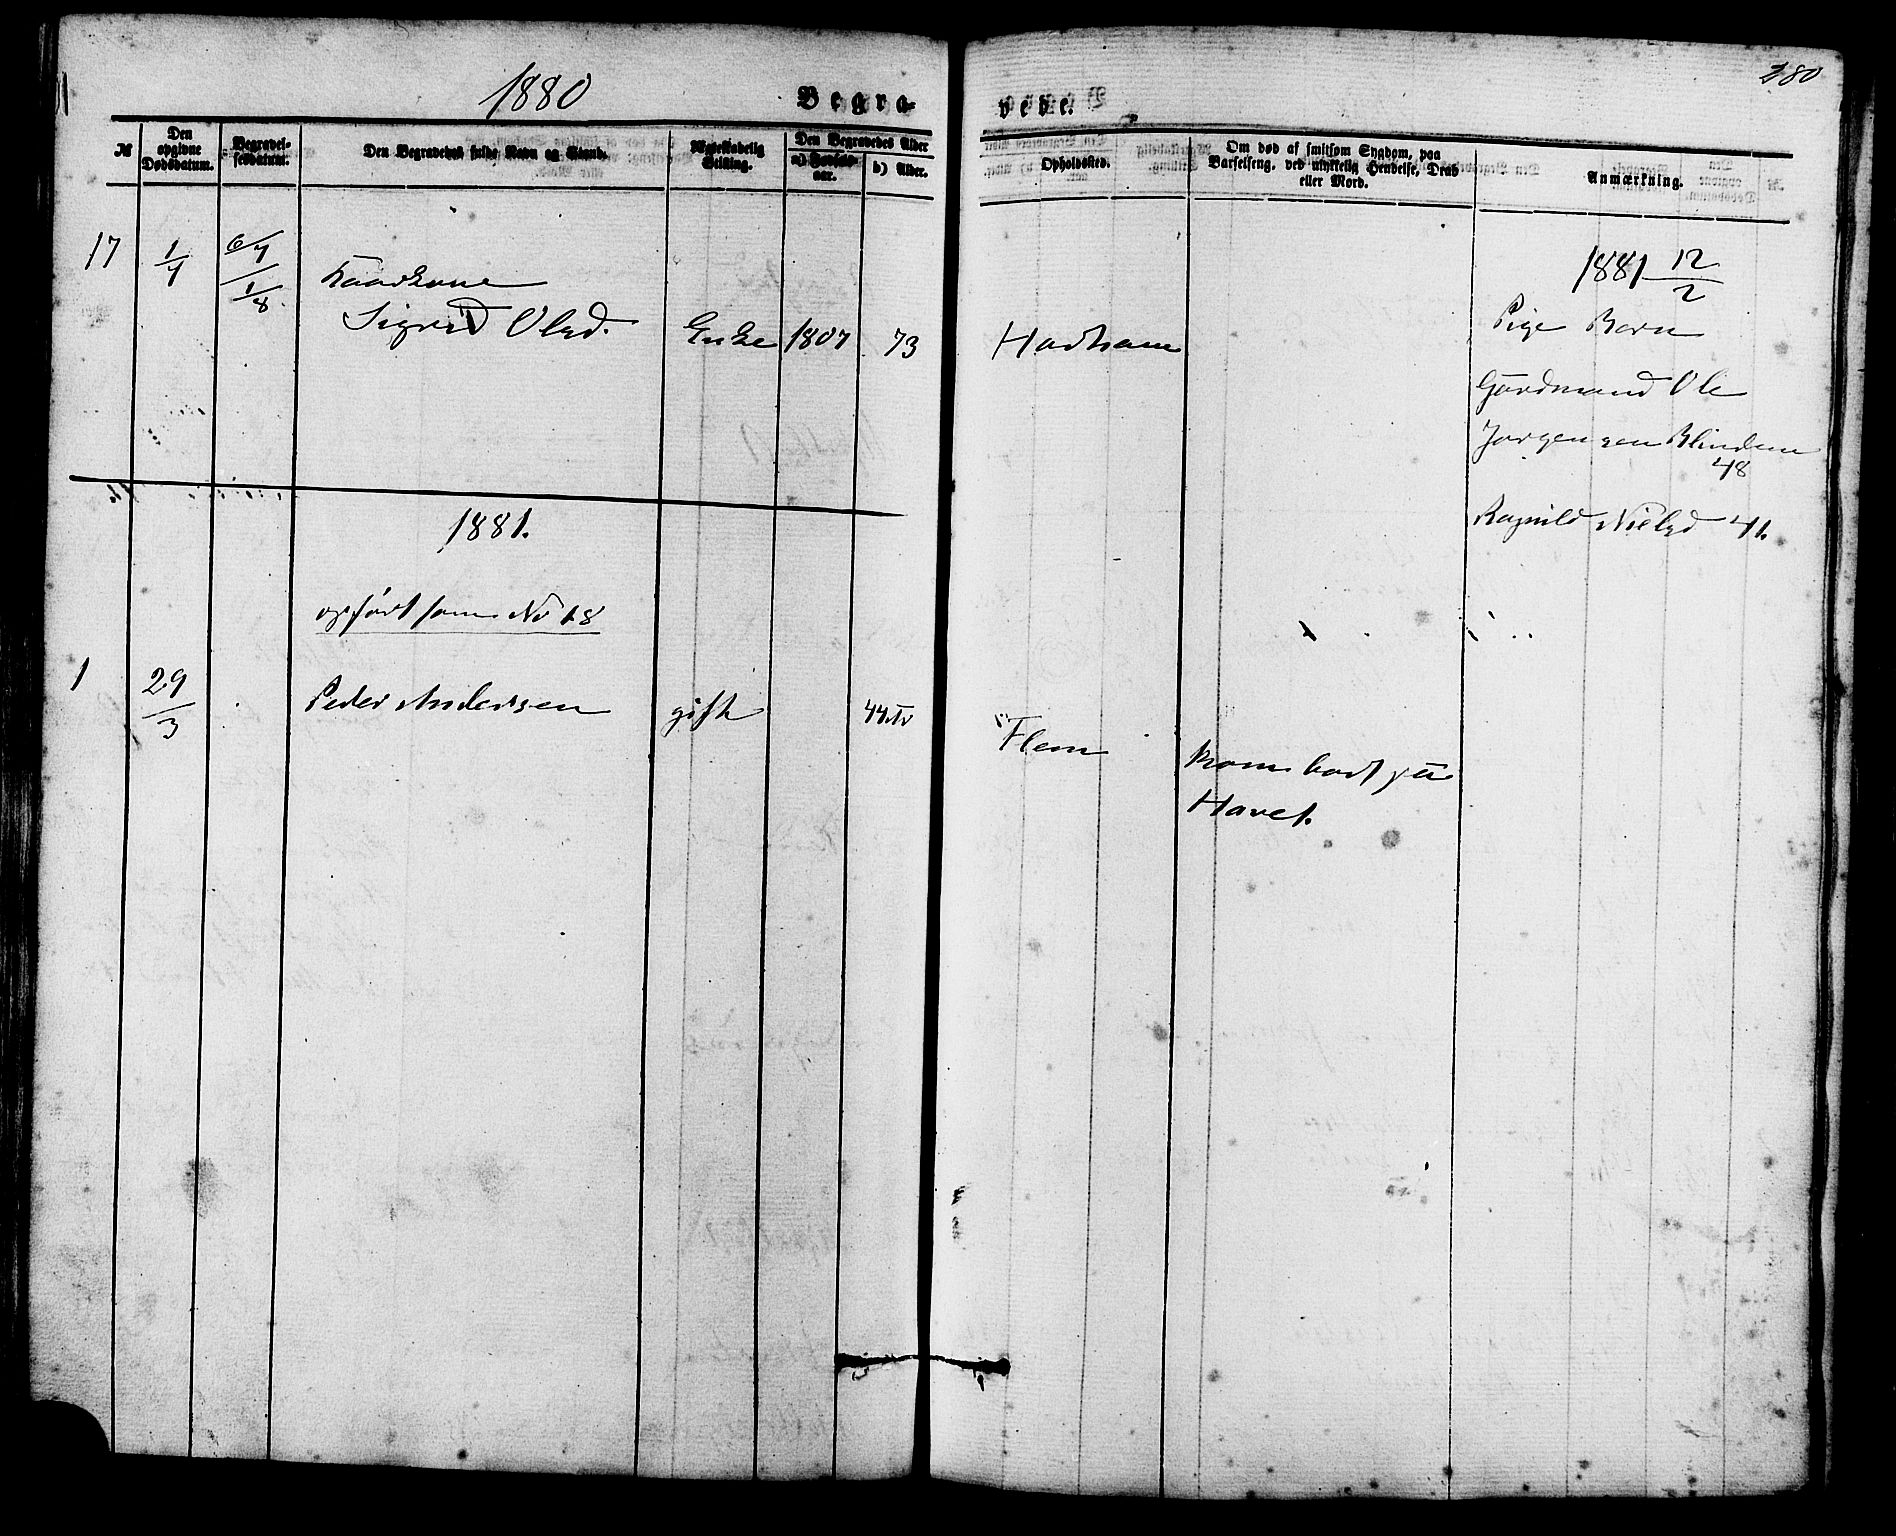 1880
Begra-
vede.
380
№
Den opgivne Dødsdatum.
Begravel-sesdatum.
Den Begravedes fulde Navn og Stand.
Ægteskabelig Stilling.
Den Begravedes Alder
a) Fødsels-aar.
b) Alder.
Opholdssted.
Om død af smitsom Sygdom, paa Barselseng, ved ulykkelig Hendelse, Drab eller Mord.
Anmærkning.
17
1/7
6/7
1/8
Kaarkone
Sigrid Olsd.
Enke
1807
73
Hadham
1881 12/2
Pige Barn
Gardmand Ole
Jorgensen Blindem
48
Ragnild Nielsd 41.
1881.
opført som No 18
1
29/3
Peder Andersen
gift
44
Flem
Kom bort på
Havet.